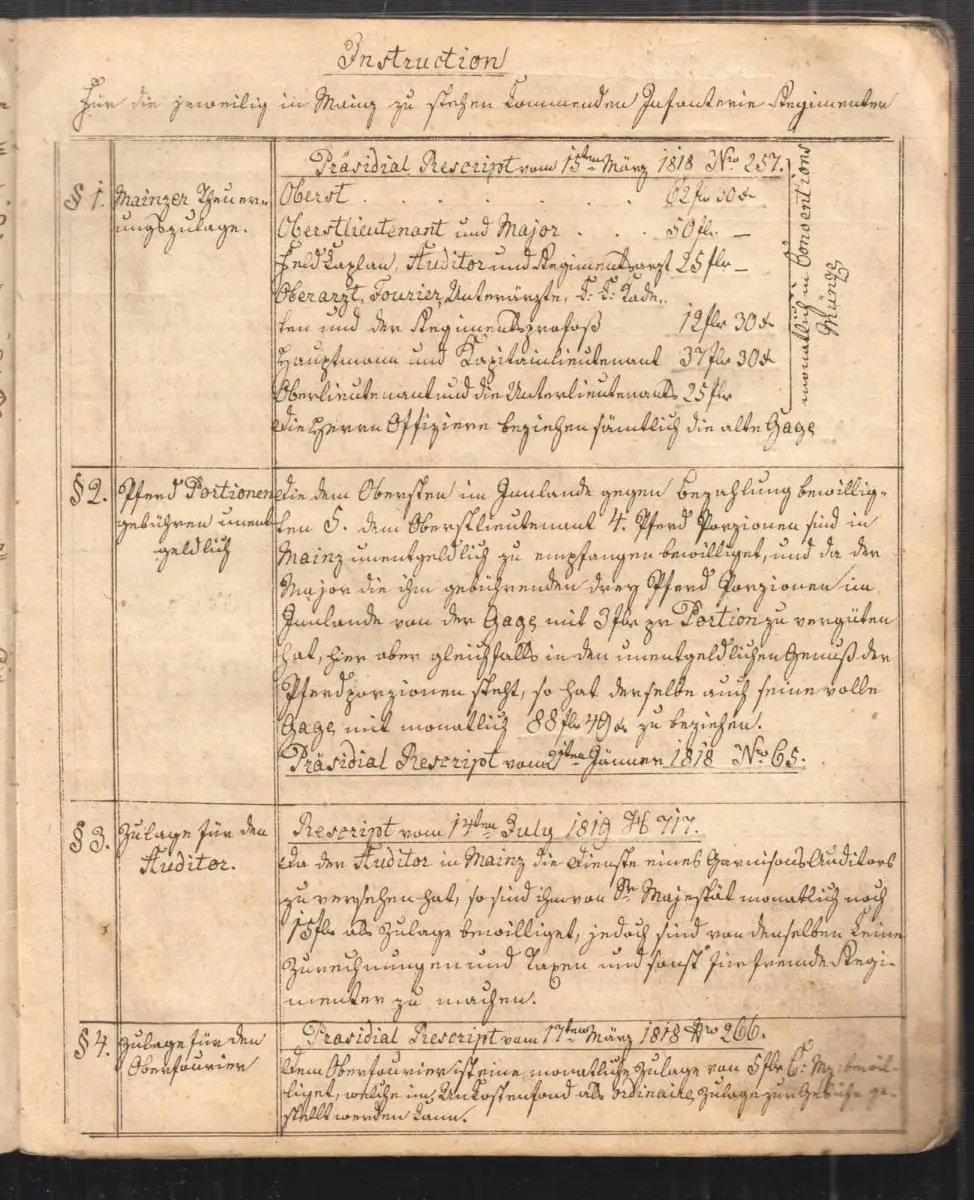 Instruction
Für die jeweilig in Mainz zu stehen kommenden Infanterie Regimenter
Präsidial Rescript vom 15ten März 1818 Nro 257.
§ 1. Mainzer Theuer-
ungszulage.
Oberst . . . . . . . 62 flr 30 x
Oberstlieutenant und Major . . . 50 flr. —
Feld Kaplan, Auditor und Regimentsarzt 25 flr —
Oberarzt, Fourier, Unterärzte, K: K: Kade„
ten und der Regimentsprofoß 12 flr 30 x
Hauptmann und Kapitainlieutenant 37 flr 30 x
Oberlieutenant und die Unterlieutenants 25 flr
die Herrn Offiziere beziehen sämtlich die alte Gage
monatlich in Conventions
Münze
§ 2. Pferd Portionen
gebühren unent
geldlich
Die dem Obersten im Innlande gegen Bezahlung bewillig-
ten 5. dem Oberstlieutenant 4. Pferd Porzionen sind in
Mainz unentgeldlich zu empfangen bewilliget, und da der
Major die ihm gebührenden drey Pferd Porzionen im
Innlande von der Gage mit 3 flr pr Portion zu vergüten
hat, hier aber gleichfalls in den unentgeldlichen Genuß der
Pferdporzionen steht, so hat derselbe auch seine volle
Gage mit monatlich 88 flr 49 x zu beziehen.
Präsidial Rescript vom 21ten Jänner 1818 Nro 65.
§ 3. Zulage für den
Auditor.
Rescript vom 14ten July 1819 H 717.
Da der Auditor in Mainz die Dienste eines Garnisons Auditors
zu versehen hat, so sind ihm von Sr Majestät monatlich noch
15 flr als Zulage bewilliget, jedoch sind von denselben keine
Zurechnungen und Taxen und sonst für fremde Regi-
menter zu machen.
§ 4. Zulage für den
Oberfourier
Präsidial Rescript vom 17ten März 1818 Nro 266.
Dem Oberfourier ist eine monatliche Zulage von 5 flr C: Mz: bewil-
liget, welche im Unkostenfond als ordinaire Zulage zur Gebühr ge-
stellt werden kann.